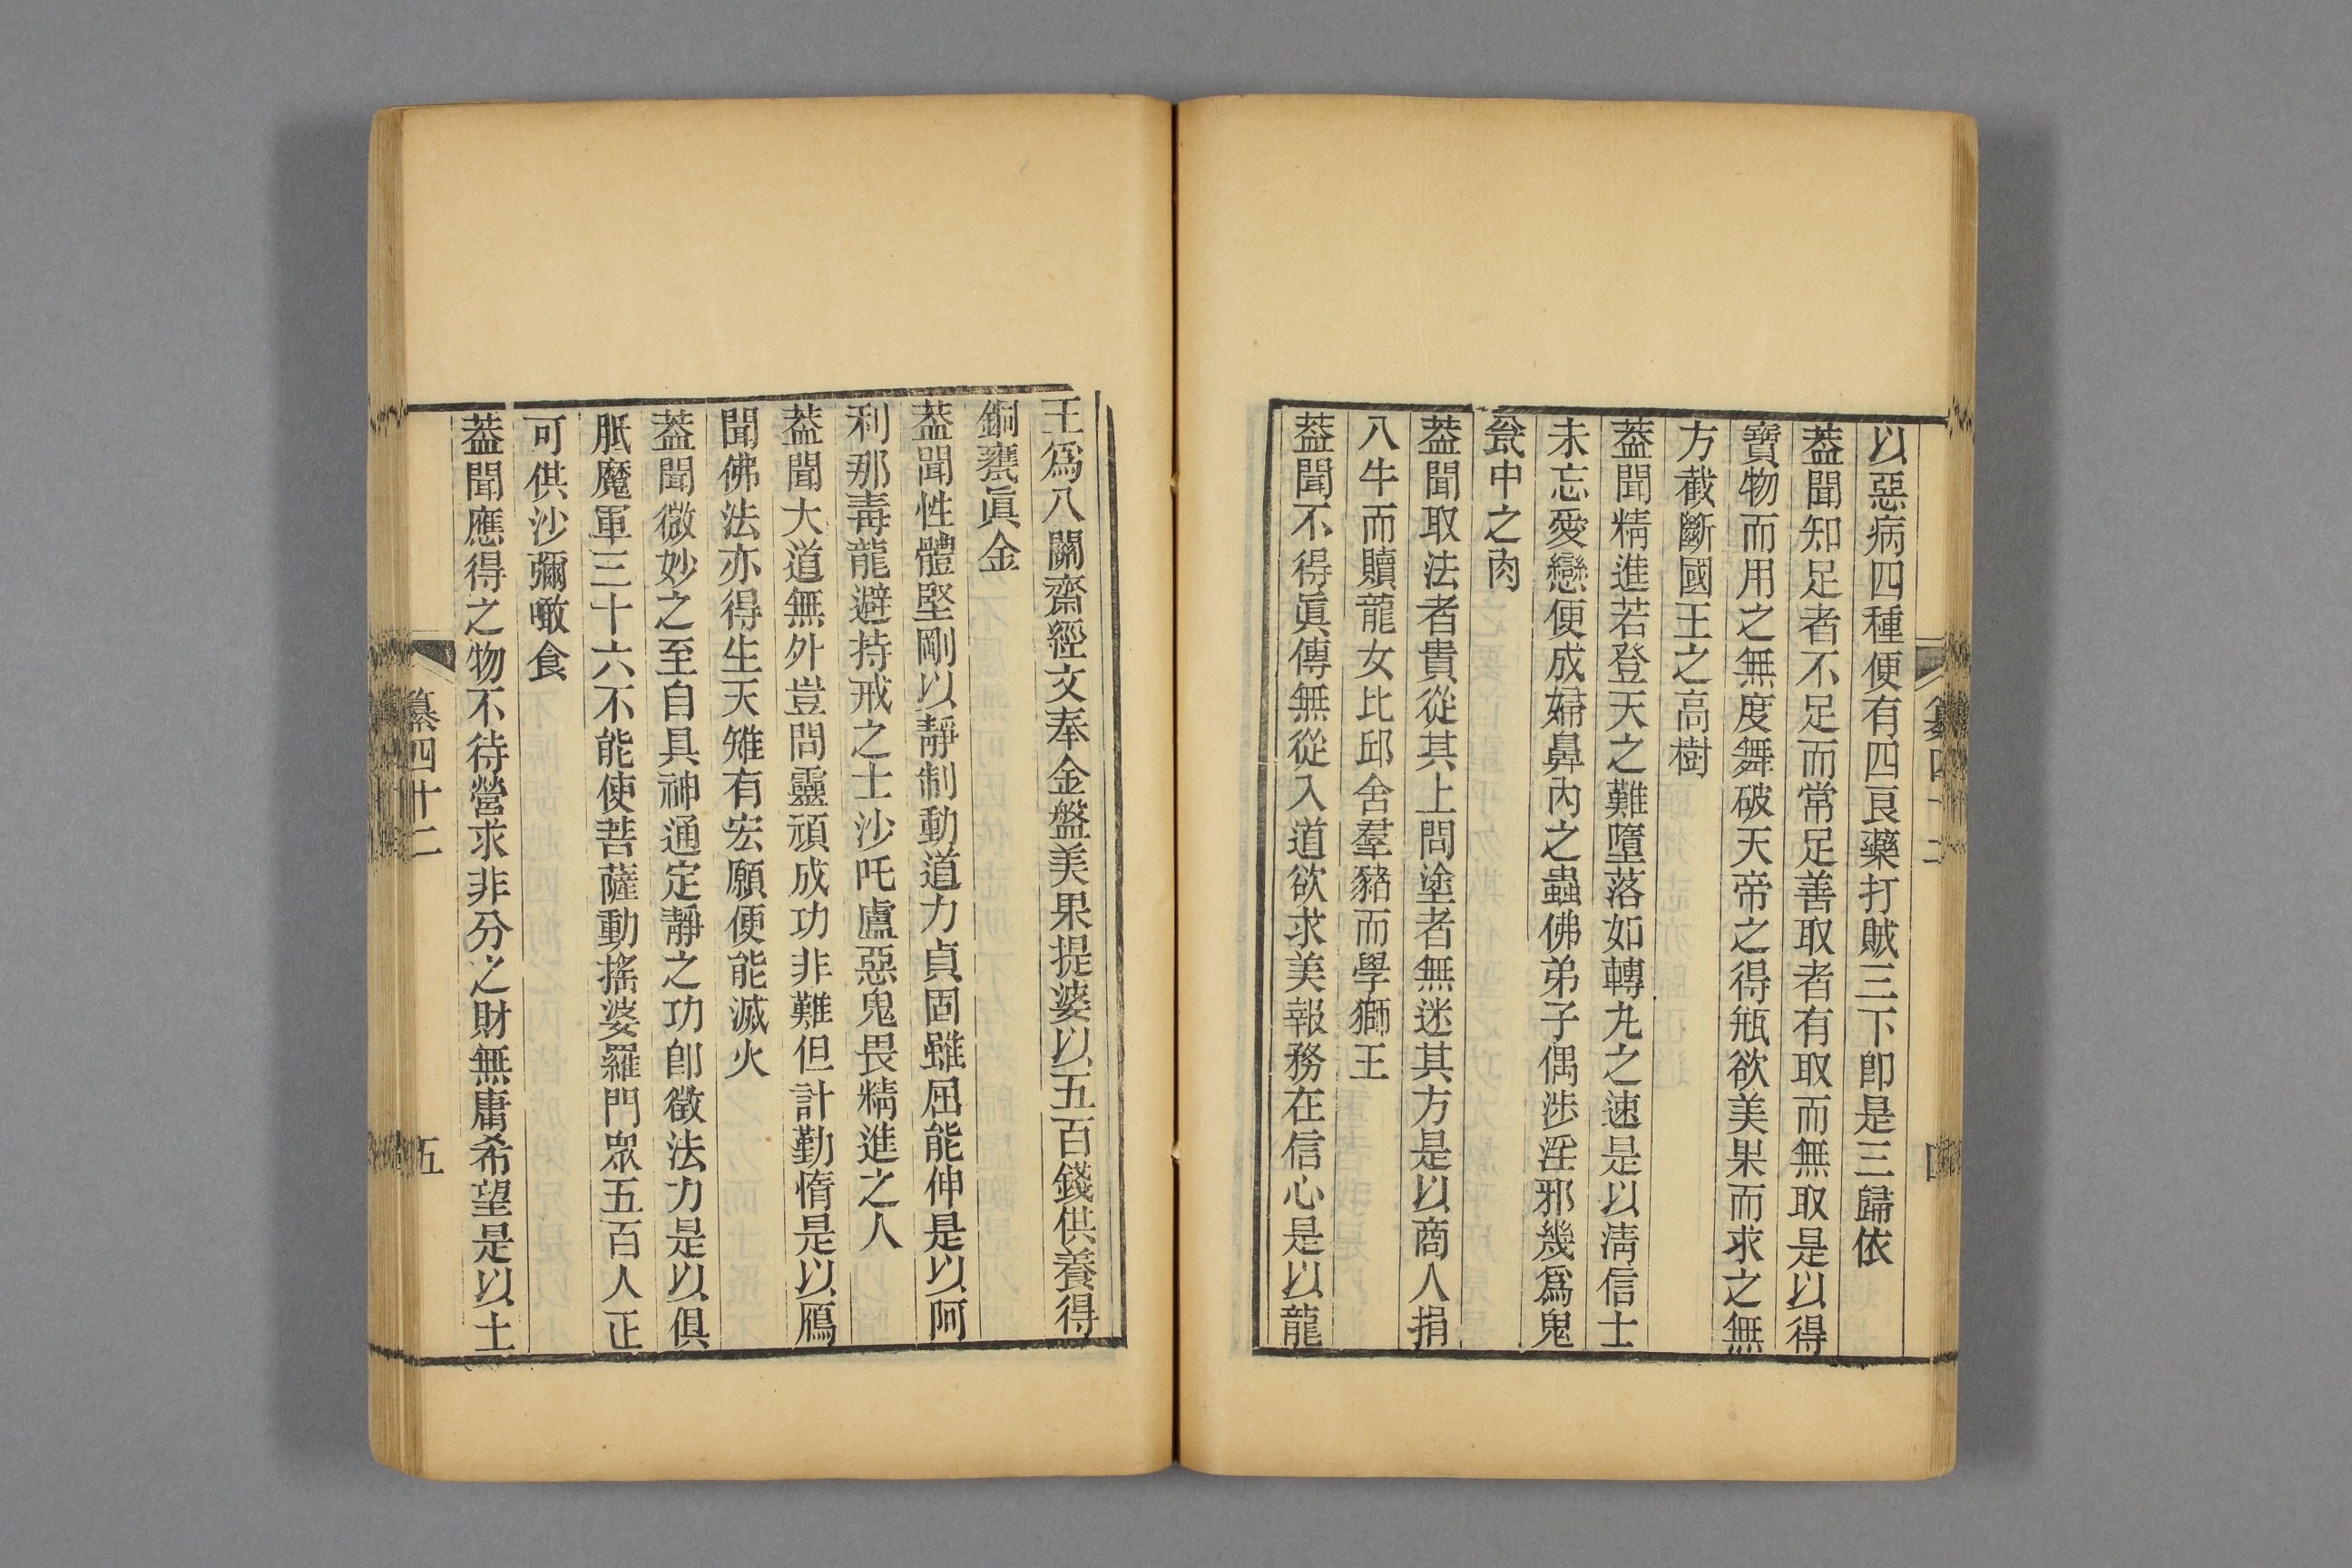 以惡病四種便有四良藥打賊三下卽是三歸依
葢聞知足者不足而常足善取者有取而無取是以得
寶物而用之無度舞破天帝之得甁欲美果而求之無
方截斷國王之高樹
葢聞精進若登天之難墮落如轉丸之速是以淸信士
未忘愛戀便成婦鼻內之蟲佛弟子偶涉淫邪幾爲鬼
瓮中之肉
葢聞取法者貴從其上問塗者無迷其方是以商人捐
八牛而贖龍女比邱舍羣豬而學獅王
葢聞不得眞傳無從入道欲求美報務在信心是以龍
王爲八關齋經文奉金盤美果提婆以五百錢供養得
銅甕眞金
葢聞性體堅剛以靜制動道力貞固雖屈能伸是以阿
利那毒龍避持戒之士沙吒盧惡鬼畏精進之人
葢聞大道無外豈問靈頑成功非難但計勤惰是以鴈
聞佛法亦得生天雉有宏願便能滅火
葢聞微妙之至自具神通定靜之功卽徵法力是以俱
胝魔軍三十六不能使菩薩動搖婆羅門眾五百人正
可供沙彌噉食
葢聞應得之物不待營求非分之財無庸希望是以土
纂四十二
五